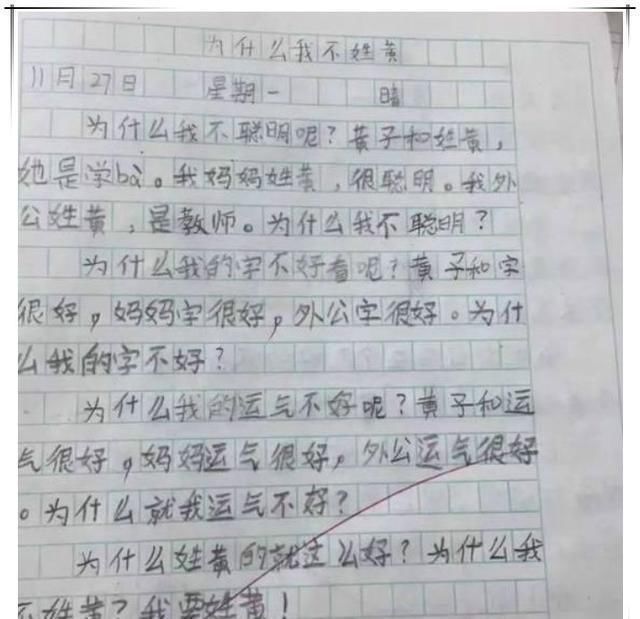 为什么我不姓黄
11月27日 星期一 晴
为什么我不聪明呢？黄子和姓黄，
她是学bà。我妈妈姓黄，很聪明。我外
公姓黄，是教师。为什么我不聪明？
为什么我的字不好看呢？黄子和字
很好，妈妈字很好，外公字很好。为什
么我的字不好？
为什么我的运气不好呢？黄子和运
气很好，妈妈运气很好，外公运气很好
。为什么就我运气不好？
为什么姓黄的就这么好？为什么我
不姓黄？我要姓黄！